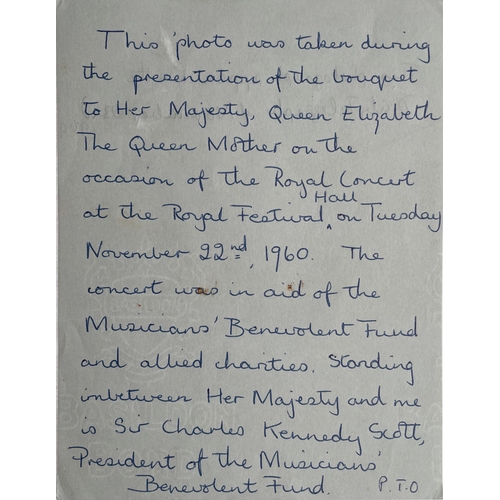 This photo was taken during
the presentation of the bouquet
to Her Majesty, Queen Elizabeth
The Queen Mother on the
occasion of the Royal Concert
at the Royal Festival Hall on Tuesday
November 22nd, 1960. The
concert was in aid of the
Musicians' Benevolent Fund
and allied charities. Standing
inbetween Her Majesty and me
is Sir Charles Kennedy Scott,
President of the Musicians'
Benevolent Fund. P.T.O